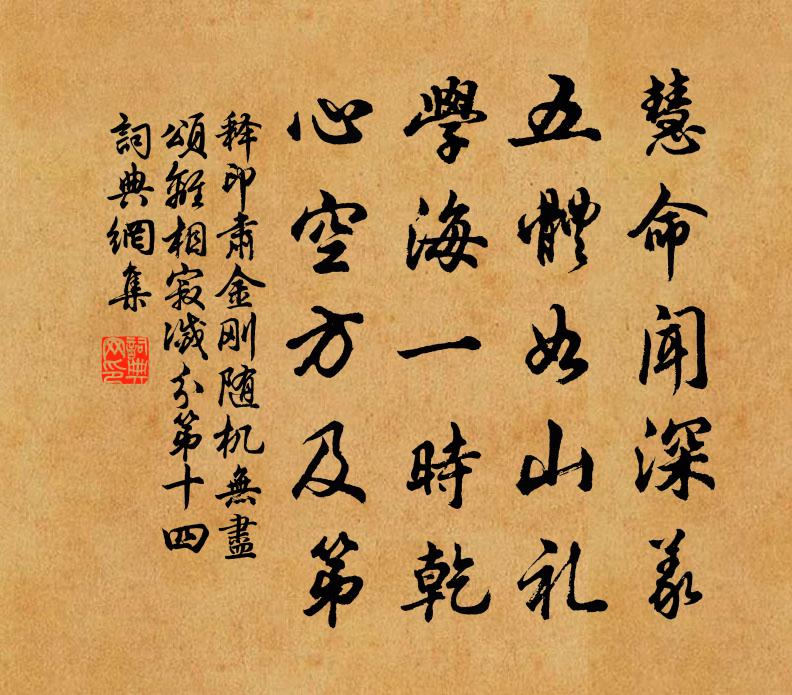 慧命闻深义
五體如山礼
學海一時乾
心空方及第
释印肃金刚随机無盡
頌離相寂滅分第十四
詞典網集
詞典
网印